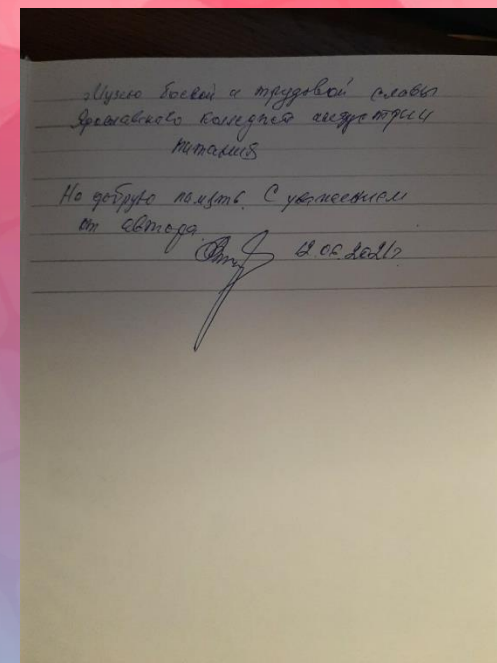 Музею боевой и трудовой славы
Ярославского колледжа индустрии
питания
На добрую память. С уважением
от автора.
12.06.2021г